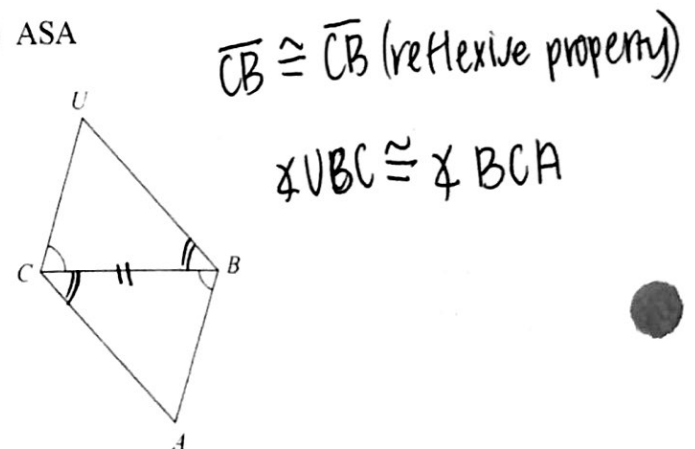 ASA
C̅B̅ ≅ C̅B̅ (reflexive property)
∡UBC ≅ ∡BCA
U
C
B
A